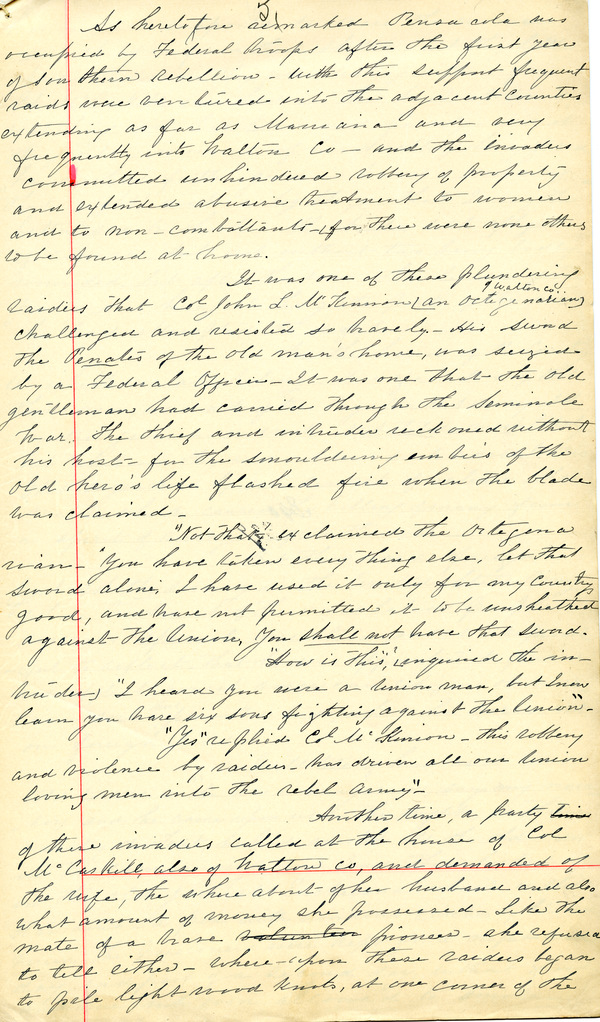 5
As heretofore remarked Pensacola was
occupied by Federal troops after the first year
of southern rebellion - with this support frequent
raids were ventured into the adjacent counties
extending as far as Mariana and very
frequently into Walton Co - and the invaders
committed unhindered robbery of property
and extended abusive treatment to women
and to non-combattants - (for there were none others
to be found at home.
It was one of these plundering
of Walton co.
raiders that Col John L. McKinnon, (an Octegenarian)
challenged and resisted so bravely - His sword
the Penates of the old man's home, was seized
by a Federal Officer - It was one that the old
gentleman had carried through the Seminole
War. The thief and intruder reckoned without
his host - for the smouldering embers of the
old hero's life flashed fire when the blade
was claimed -
"Not that", exclaimed the Octegena
rian - "You have taken every thing else, let that
sword alone; I have used it only for my Country's
good, and have not permitted it to be unsheathed
against the Union, You shall not have that sword.
"How is this", inquired the in-
truder, "I heard you were a Union man, but I now
learn you have six sons fighting against the Union" -
"Yes" replied Col McKinion - this robbery
and violence by raiders - has driven all our Union
loving men into the rebel army" -
Another time, a party time
of these invaders called at the house of Col
McCaskill, also of Walton co, and demanded of
the wife, the where about of her husband and also
what amount of money she possessed - Like the
mate of a brave volunteer pioneer - she refused
to tell either - where-upon these raiders began
to pile light wood knots, at one corner of the